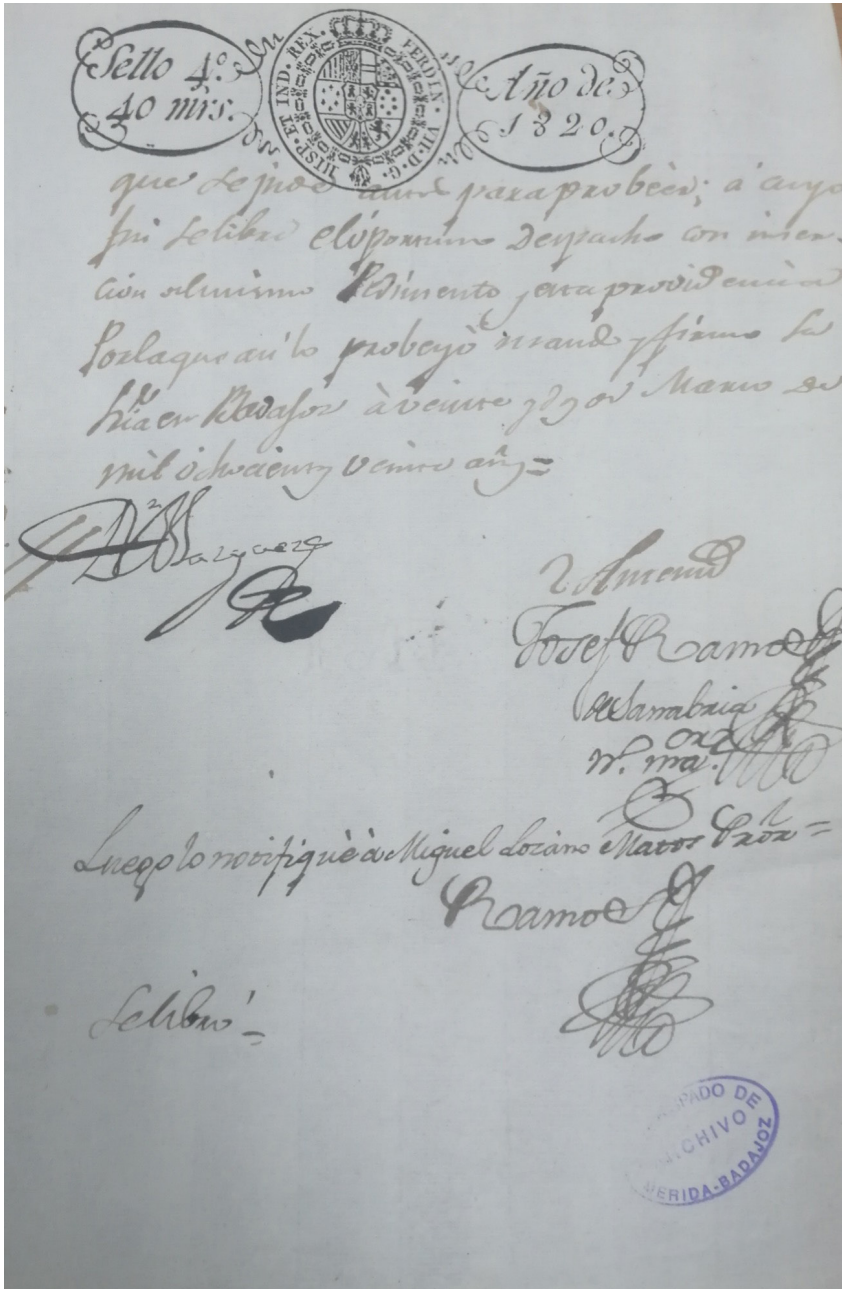 Sello 4º.
40 mrs.
HISP. ET IND. REX. FERDIN. VII. D. G.
Año de
1820.
que se pide para probeer; á cuyo
fin se libre el oportuno Despacho con inser-
cion del mismo Pedimento y esta providencia
Por la que asi lo probeyó mandó y firmó Su
Sria en Badajoz à veinte y dos Marzo de
mil ochocientos veinte años =
Vazquez
Josef Ramos
de Sanabria
Luego lo notifiqué à Miguel Lozano Matos Pror =
Ramos
Se libró =
ARZOBISPADO DE
ARCHIVO
MERIDA-BADAJOZ